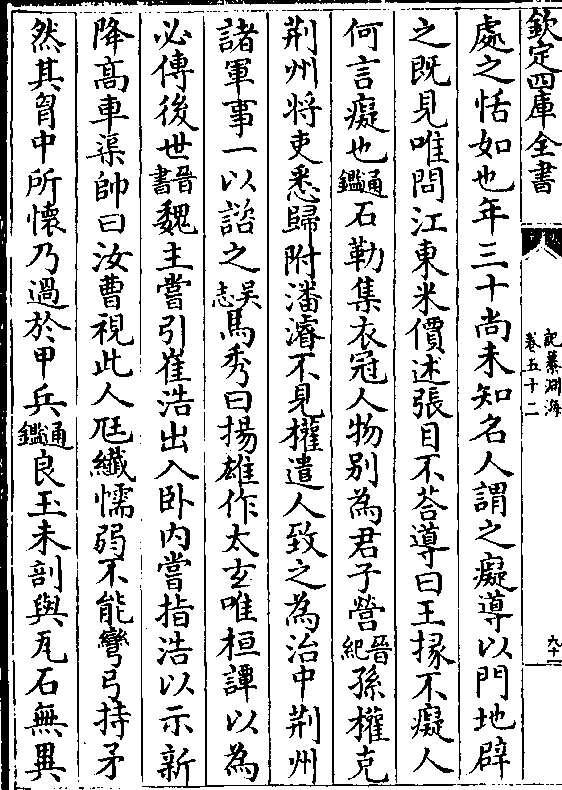 欽定四庫全書
記纂淵海
卷五十二
處之恬如也年三十尚未知名人謂之癡導以門地辟
之既見唯問江東米價述張目不荅導曰王掾不癡人
何言癡也通鑑石勒集衣冠人物别為君子營晉紀孫權克
荆州将吏悉歸附潘濬不見權遣人致之為治中荆州
諸軍事一以諮之吳志馬秀曰揚雄作太玄唯桓譚以為
必傳後世晉書魏主嘗引崔浩出入卧内嘗指浩以示新
降髙車渠帥曰汝曹視此人尫纖懦弱不能彎弓持矛
然其胷中所懷乃過於甲兵通鑑良玉未剖與瓦石無異